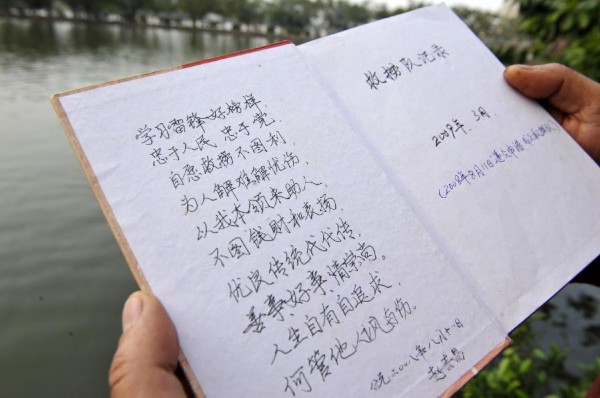 学习雷锋好榜样
忠于人民 忠于党
自愿救捞不图利
为人解难解忧伤
以我本领来助人
不图钱财和表扬
优良传统代代传
善事好案情崇尚
人生自有自追求
何管他人风与伤
二00八年八月十一日
救捞队记录
2009年.3月
(2008年8月11日递交申请